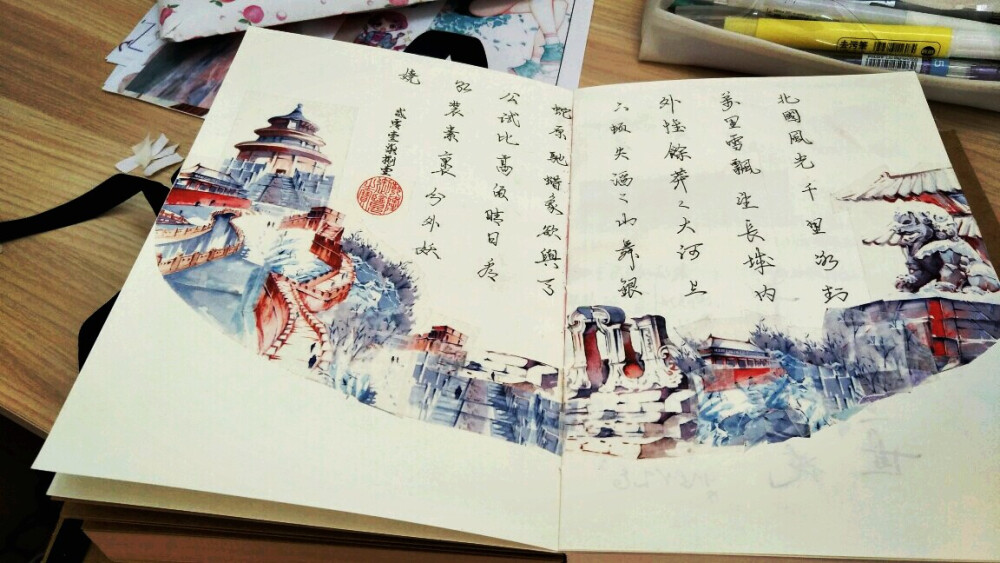 北國風光千里冰封
萬里雪飄望長城內
外惟餘莽々大河上
下頓失滔々山舞銀
蛇原馳蠟象欲與天
公試比高須晴日看
紅裝素裹分外妖
嬈
貳零壹柒捌壹